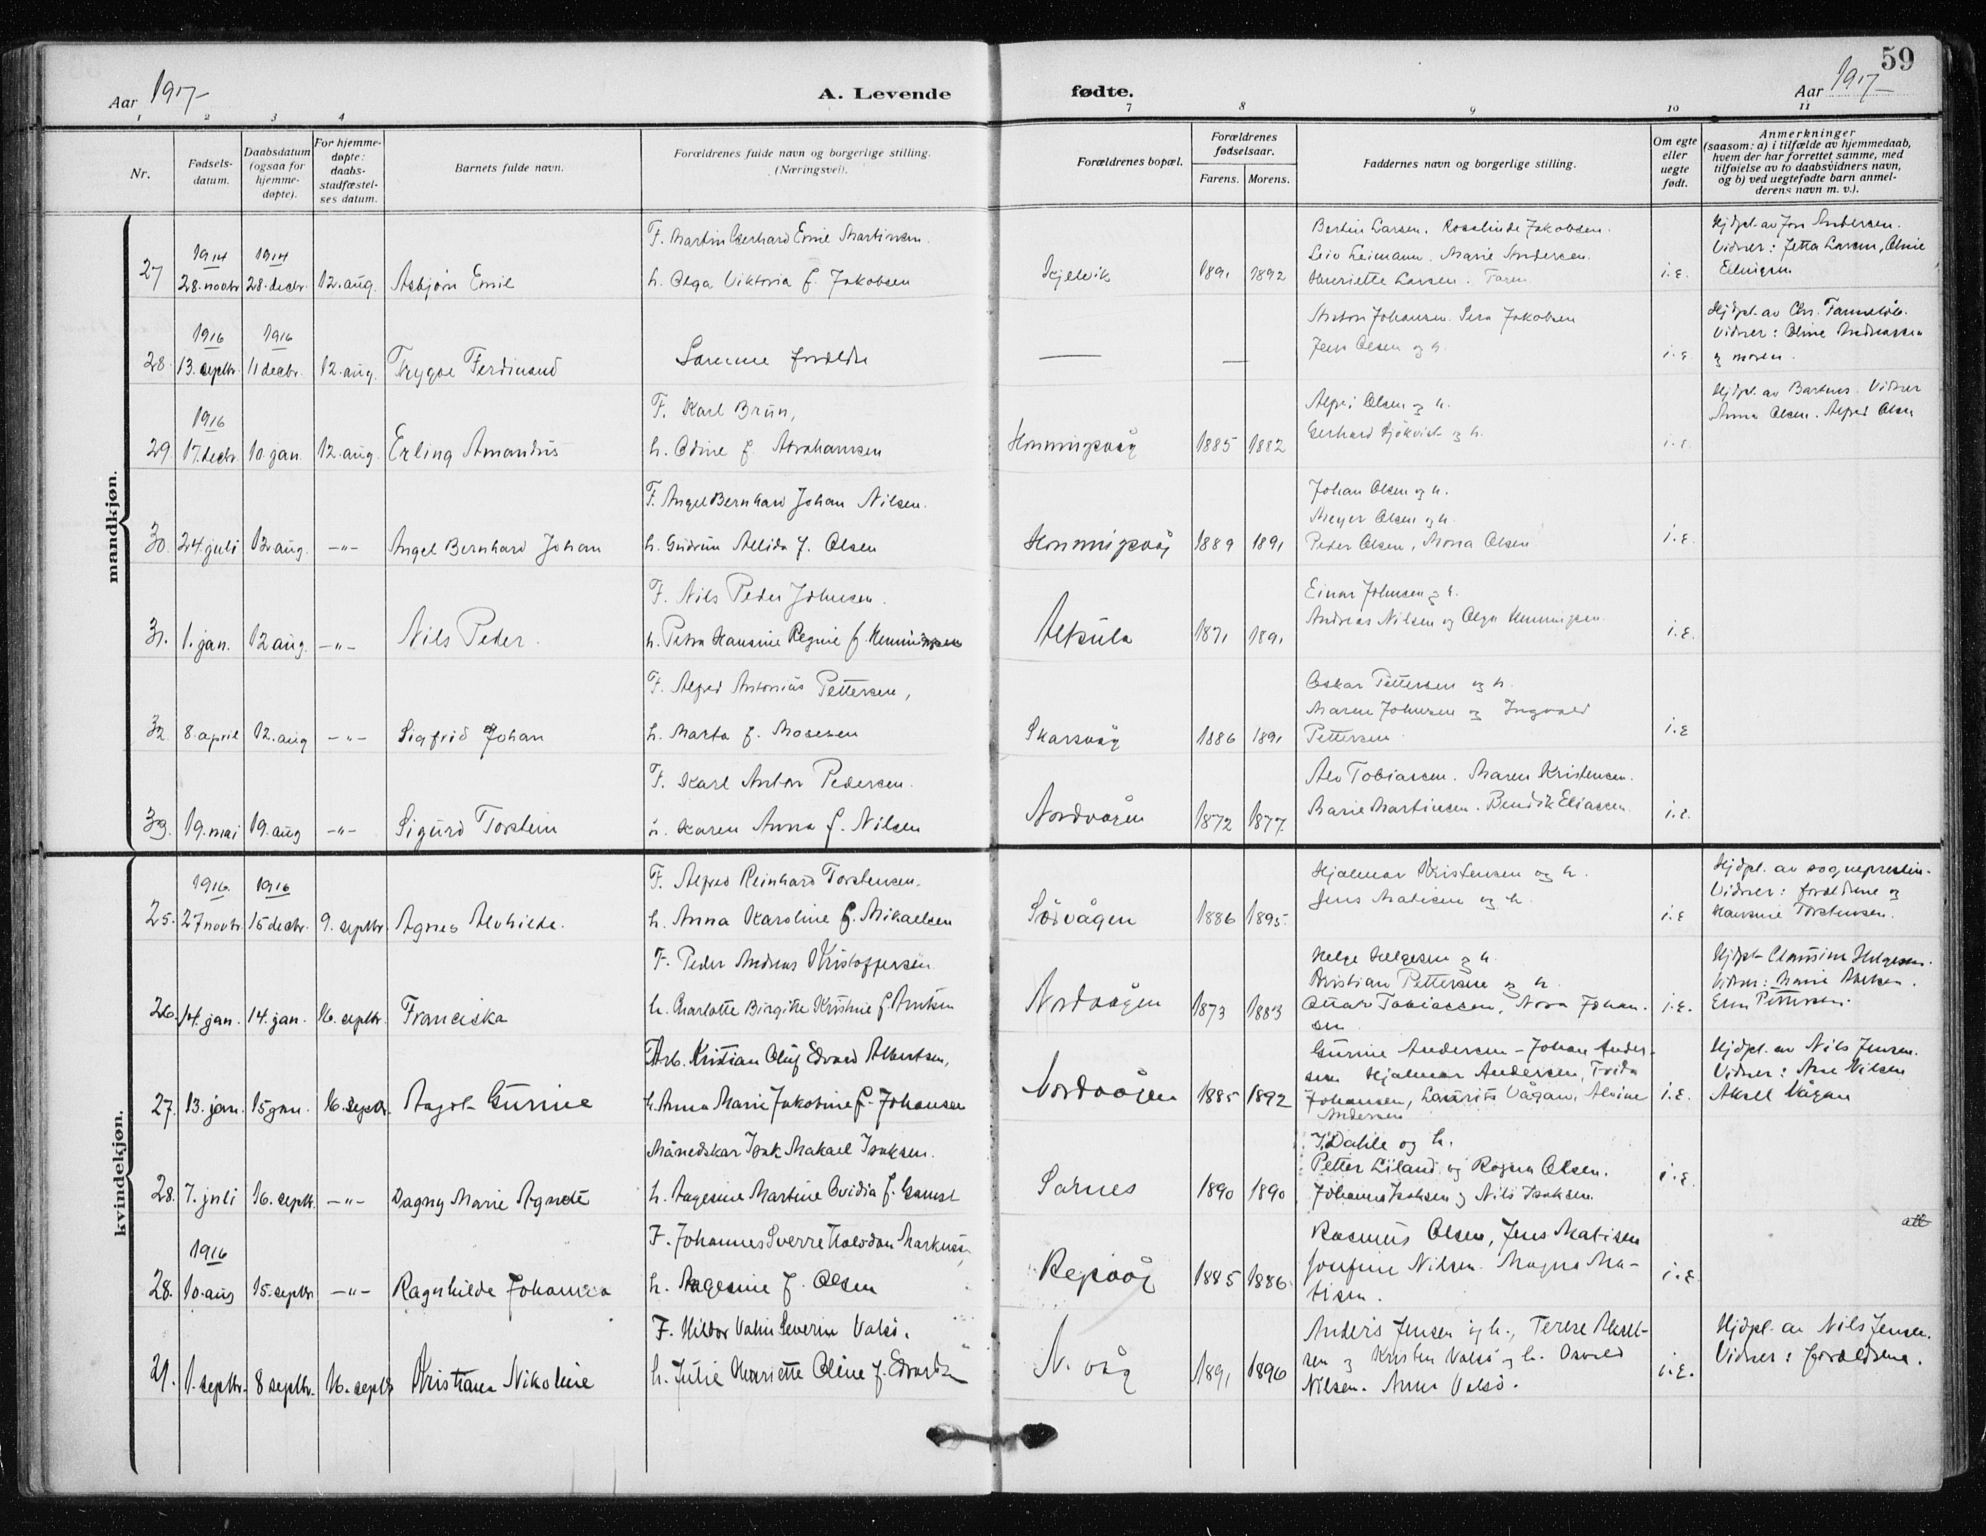 59
Aar 1917 A. Levende fødte. Aar 1917
1 2 3 4 7 8 9 10 11
Nr. Fødselsdatum. Daabsdatum (ogsaa for hjemmedøpte). For hjemmedøpte: daabsstadfæstelses datum. Barnets fulde navn. Forældrenes fulde navn og borgerlige stilling. (Næringsvei). Forældrenes bopæl. Forældrenes fødselsaar. Farens. Morens. Faddernes navn og borgerlige stilling. Om egte eller uegte født. Anmerkninger (saasom: a) i tilfælde av hjemmedaab, hvem der har forrettet samme, med tilføielse av to daabsvidners navn, og b) ved uegtefødte barn anmelderens navn m. v.).
mandkjøn.
1914 1914 F. Martin Gerhard Emil Martinsen. Bertin Larsen. Rosalinde Jakobsen. Hjdpt. av Jon Andersen.
Leiv Leimann. Marie Andersen. Vidner: Jetta Larsen,
27 28. novbr 28. decbr. 12. aug. Asbjørn Emil h. Olga Viktoria f. Jakobsen Kjelvik 1891 1892 Henriette Larsen. Faren i.e.
1916 1916 Anton Johansen. Jakobsen Hjdpt. av Chr.
Samme forældre Jens Olsen og h. Vidner: Oline Andreassen
28. 13. septbr. 11 decbr. 12. aug. Trygve Ferdinand — — i.e. og moren.
1916 F. Karl Brun, Olsen og h. Hjdpt. av Bartnes. Vidner
Gerhard Sjökvist og h. Anna Olsen. Alfred Olsen
29. 17. decbr 10. jan. 12. aug. Erling Amandus h. Odine f. Abrahamsen Honningsvåg 1885 1882 i.e.
F. Angel Bernhard Johan Nilsen. Johan Olsen og h.
Meyer Olsen og h.
30. 24. juli 12. aug. -"- Angel Bernhard Johan h. Gudrun Allida f. Olsen Honningsvåg 1889 1891 Peder Olsen, Mona Olsen i.e.
F. Nils Peder Johnsen. Einar Johnsen og h.
Andreas Nilsen og Olga Henningsen
31. 1. jan. 12 aug. -"- Nils Peder. h. Petra Hansine Regine f. Henningsen 1871 1891 i.e.
F. Alfred Antonius Pettersen, Oskar Pettersen og h.
Maren Johnsen og Ingvald
32. 8. april 12. aug -"- Sigfrid Johan h. Marta f. Mosesen Skarsvåg 1886 1891 Pettersen. i.e
F. Karl Anton Pedersen. Alv Tobiassen. Maren Kristensen.
33. 19. mai 19. aug -"- Sigurd Torstein h. Karen Anna f. Nilsen Nordvågen 1872 1877. Marie Martinsen. Bendik Eliassen i.e.
kvindekjøn.
1916. 1916 F. Alfred Reinhard Torstensen. Hjalmar Kristensen og h. Hjdpt. av sognepresten.
Jens Matisen og h. Vidner: forældrene og
25. 27 novbr. 15 decbr. 9. septbr. Agnes Alvhilde. h. Anna Karoline f. Mikaelsen Sörvågen 1886 1895. i.e Hansine Torstensen.
F. Peder Andreas Kristoffersen. Helge Helgesen og h. Hjdpt. Helgesen.
Kristian Pettersen og h. Vidner: Marie
26. 14. jan. 14. jan. 16. septbr. Franciska h. Charlotte Birgitte Kristine f. Arntsen Nordvågen 1873 1883 Ottar Tobiassen, Nora Johansen i.e. Pettersen.
Arb. Kristian Oluf Edvard Albertsen, Gurine Andersen - Johan Andersen Hjdpt. av Nils Jensen.
Hjalmar Andersen, Frida Vidner: Nilsen
27. 13. jan. 15 jan. 16. septbr. Aagot Gurine h. Anna Marie Jakobine f. Johansen Nordvågen 1885 1892 Johansen, Laurits Vågan, Alvine i.e. Aksel Vågan
Andersen
Månedskar Isak Makael Isaksen. J. Dahle og h.
Petter Liland og Ragna Olsen.
28. 7. juli 16. septbr. -"- Dagny Marie Agnete h. Aagesine Martine Ovidia f. Gamst Sarnes 1890 1890 Johannes Isaksen og Nils Isaksen. i.e.
att
1916 F. Johannes Sverre Halvdan Markus Rasmus Olsen, Jens Matisen
28. 10. aug 15. septbr -"- Ragnhilde Johanna h. Aagesine f. Olsen Repvåg 1885 1886. Josefine Nilsen. Magna Matisen. i.e.
F. Hildor Valin Severin Valsö. Anders Jensen og h., Terese Akselsen Hjdpt. av Nils Jensen.
og Kristen Valsö og h. Osvald Vidner: forældrene.
29. 1. septbr. 8 septbr. 16. septbr Kristiane Nikoline h. Julie Henriette Oline f. Edvardsen N. våg 1891 1896 Nilsen. Anna Valsö. i.e.